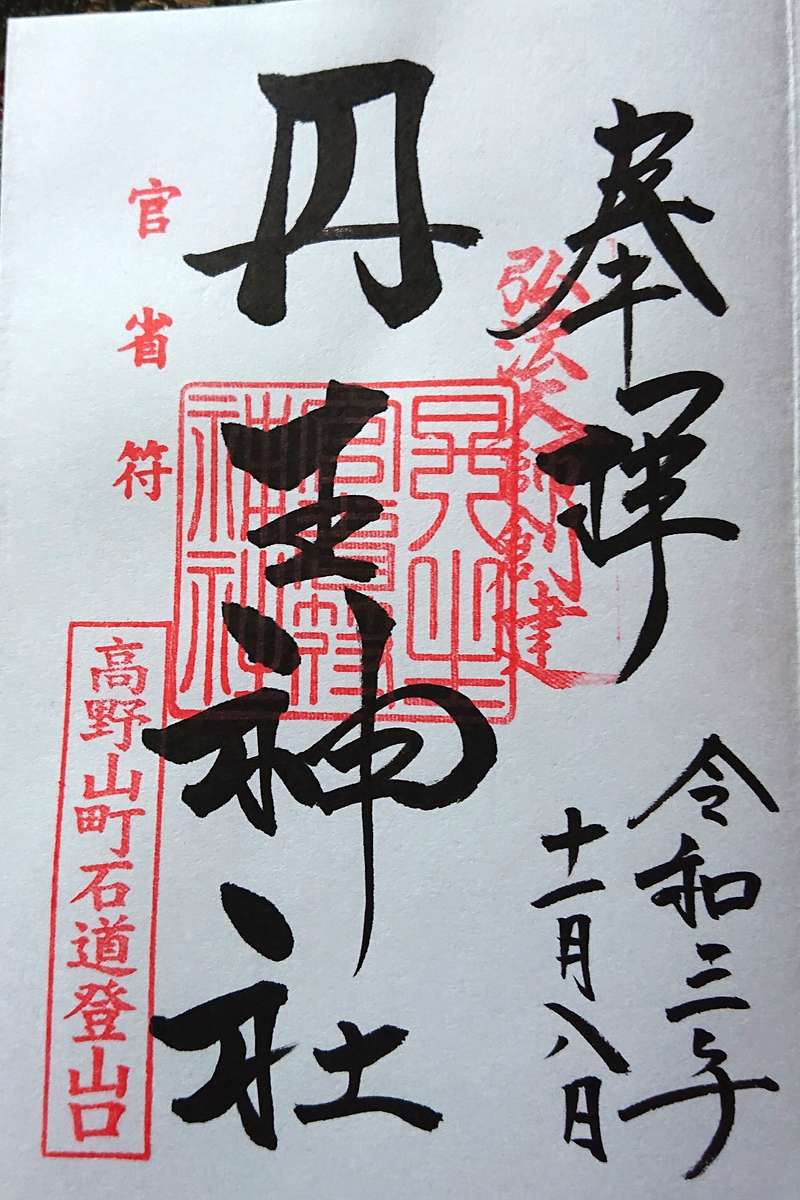 奉拝
弘法大師創建
令和三年
十一月八日
丹生神社
官省符
高野山町石道登山口